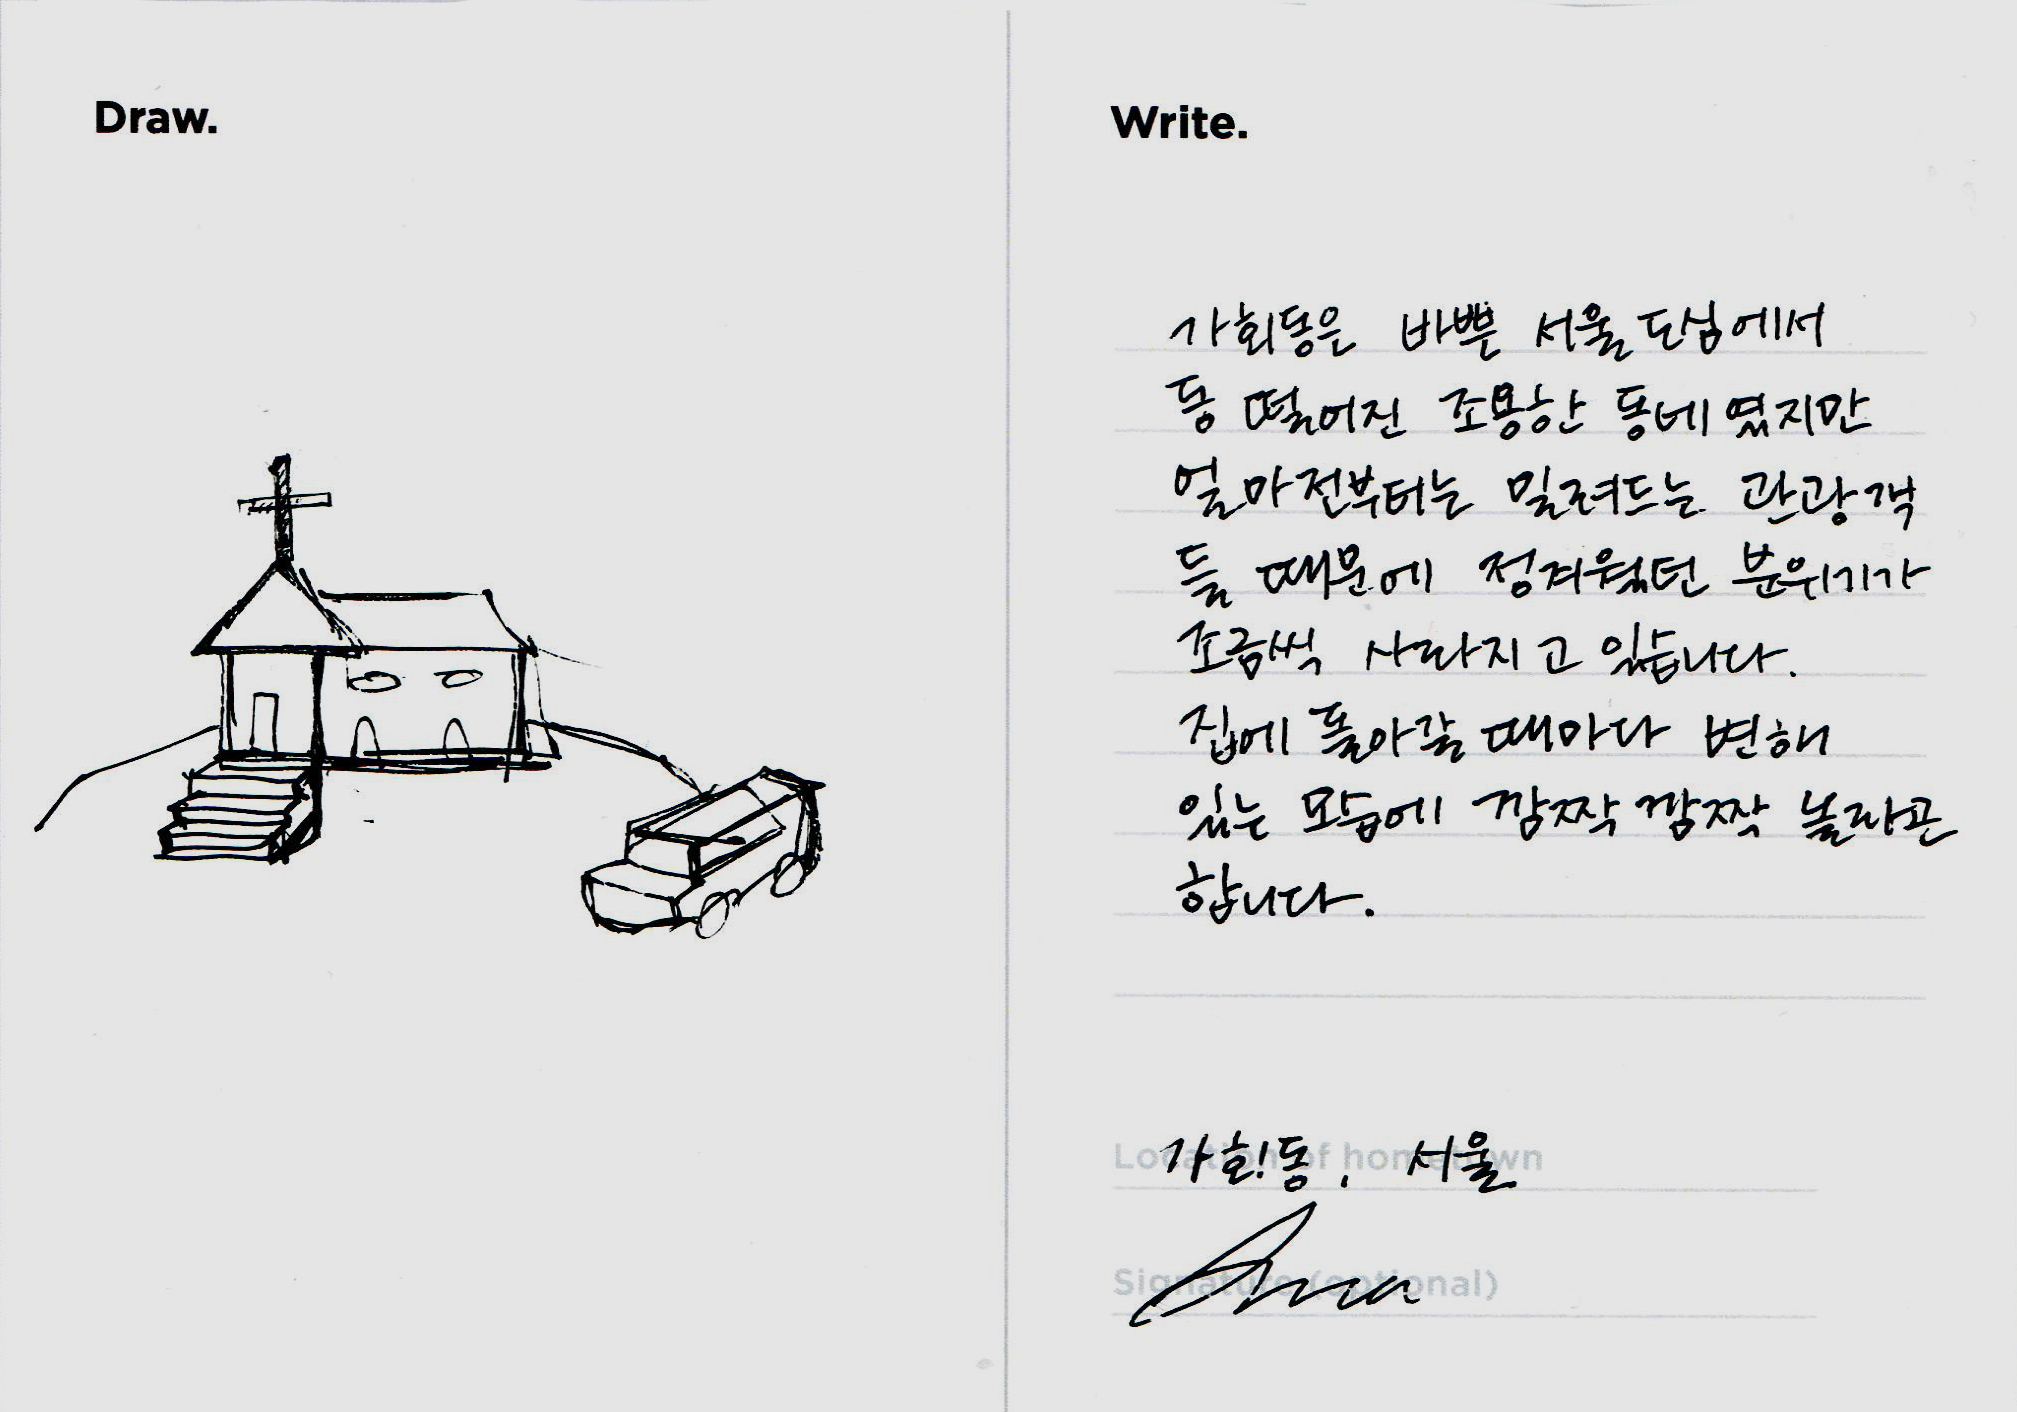 Draw.
Write.
가회동은 바쁜 서울 도심에서
동 떨어진 조용한 동네였지만
얼마전부터는 밀려드는 관광객
들 때문에 정겨웠던 분위기가
조금씩 사라지고 있습니다.
집에 돌아갈 때마다 변해
있는 모습에 깜짝깜짝 놀라곤
합니다.
Location of hometown
가회동, 서울
Signature (optional)